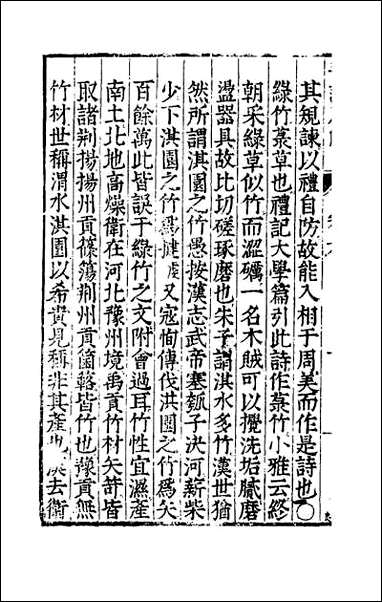 其規諫以禮自防故能入相于周美而作是詩也〇
綠竹菉草也禮記大學篇引此詩作菉竹小雅云終
朝采綠草似竹而澀礪一名木賊可以攪洗垢膩磨
盪器具故比切磋琢磨也朱子謂淇水多竹漢世猶
然所謂淇園之竹愚按漢志武帝塞瓠子決河薪柴
少下淇園之竹爲揵又寇恂傳伐淇園之竹爲矢
百餘萬此皆誤于綠竹之文附會過耳竹性宜濕產
南土北地高燥衛在河北豫州境禹貢竹材矢笴皆
取諸荆揚揚州貢篠簜荆州貢箘簵皆竹也豫貢無
竹材世稱渭水淇園以希貴見稱非其產也漢去衛